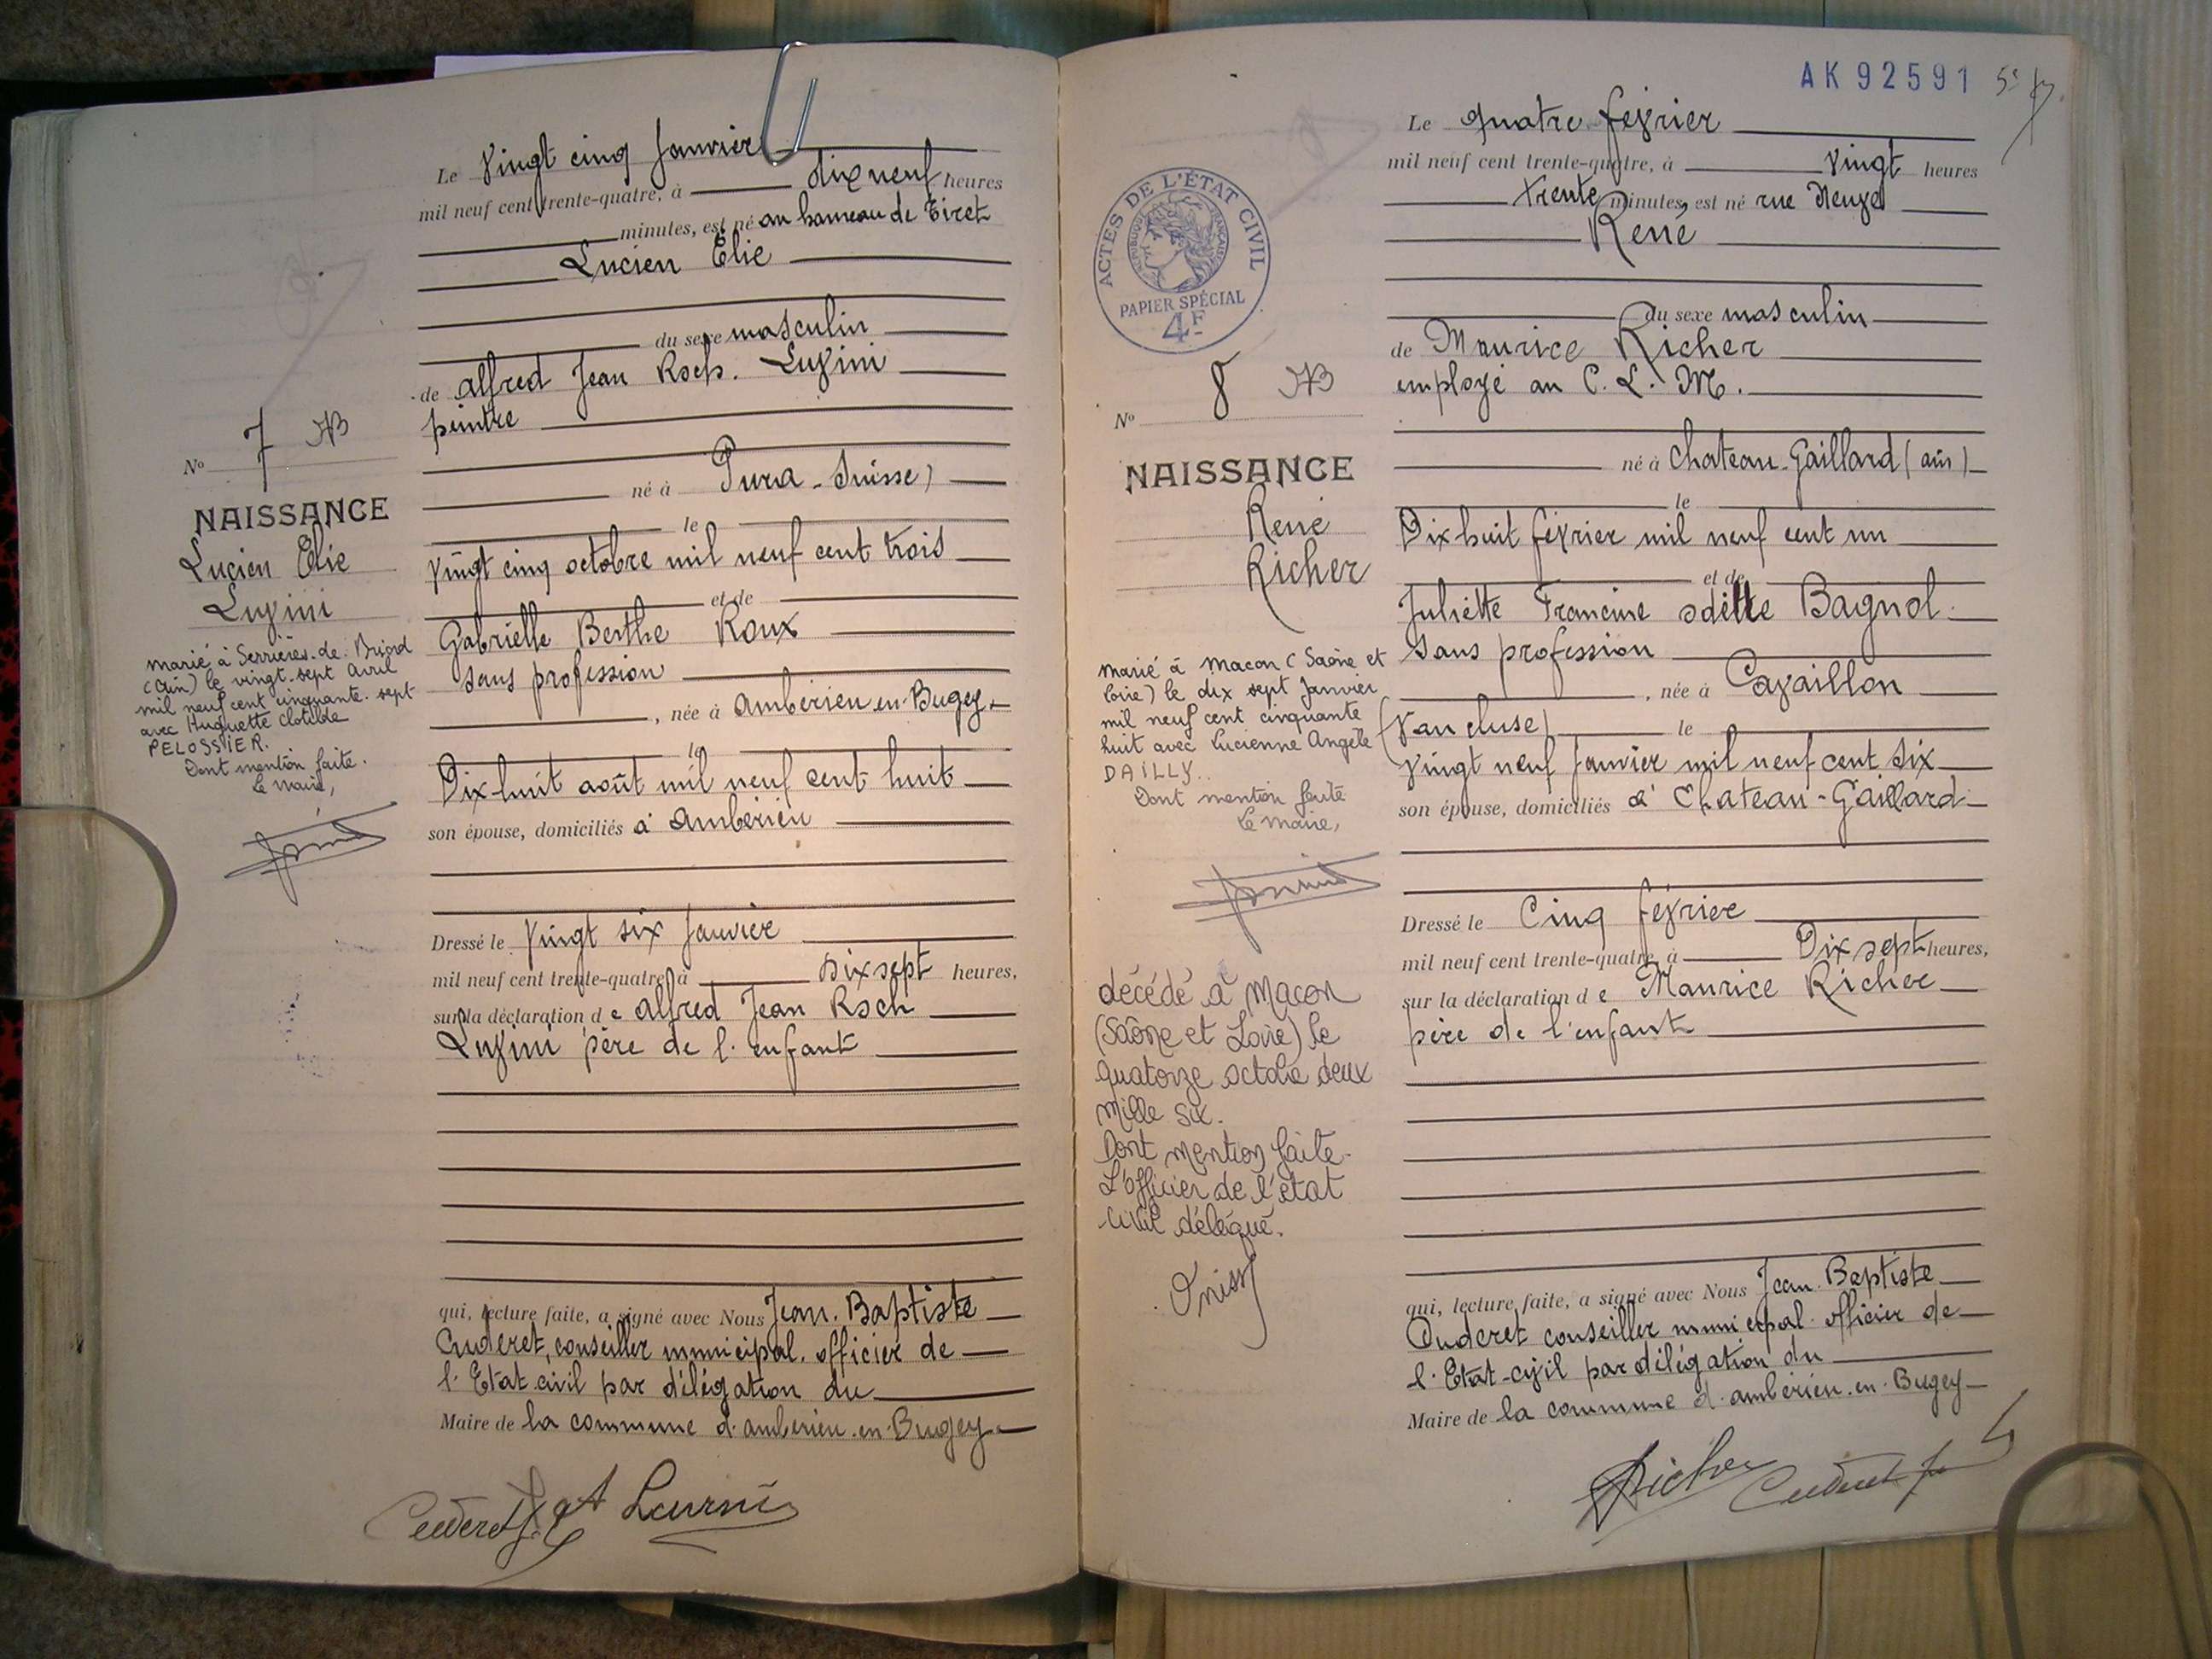 Le Vingt cinq Janvier
mil neuf cent trente-quatre, à dix neuf heures
minutes, est né au hameau de Tiret
Lucien Élie
du sexe masculin
de Alfred Jean Roch. Luvini
peintre
né à Pura - Suisse)
le
Vingt cinq octobre mil neuf cent trois
et de
Gabrielle Berthe Roux
sans profession
, née à Ambérieu-en-Bugey
le
Dix-huit août mil neuf cent huit
son épouse, domiciliés à Ambérieu
Dressé le Vingt six Janvier
mil neuf cent trente-quatre, à dix sept heures,
sur la déclaration de Alfred Jean Roch
Luvini père de l'enfant
qui, lecture faite, a signé avec Nous Jean. Baptiste
Cuderet, conseiller municipal. officier de
l'Etat civil par délégation du
Maire de la commune d'ambérieu-en-Bugey
No 7
NAISSANCE
Lucien Élie
Luvini
marié à Serrières-de-Briord
(Ain) le vingt-sept Avril
mil neuf cent cinquante-sept
avec Huguette Clotilde
PELOSSIER.
Dont mention faite.
Le Maire,
AK 92591
ACTES DE L'ÉTAT CIVIL
RÉPUBLIQUE FRANÇAISE
PAPIER SPÉCIAL
4F
No 8
NAISSANCE
René
Richer
marié à Macon (Saône et
Loire) le dix sept Janvier
mil neuf cent cinquante
huit avec Lucienne Angèle
DAILLY.
Dont mention faite
Le Maire,
décédé à Macon
(Saône et Loire) le
quatorze octobre deux
mille six.
Dont mention faite.
L'officier de l'état
civil délégué.
Le quatre février
mil neuf cent trente-quatre, à Vingt heures
trente minutes, est né rue Neuve
René
du sexe masculin
de Maurice Richer
employé au C. L. M.
né à Chateau-Gaillard (ain)
le
Dix huit février mil neuf cent un
et de
Juliette Francine Odette Bagnol.
sans profession
, née à Cavaillon
(Vaucluse) le
Vingt neuf Janvier mil neuf cent six
son épouse, domiciliés à Chateau-Gaillard
Dressé le Cinq février
mil neuf cent trente-quatre, à Dix sept heures,
sur la déclaration de Maurice Richer
père de l'enfant
qui, lecture faite, a signé avec Nous Jean-Baptiste
Cuderet conseiller municipal officier de
l'Etat-civil par délégation du
Maire de la commune d'ambérieu-en-Bugey
Richer